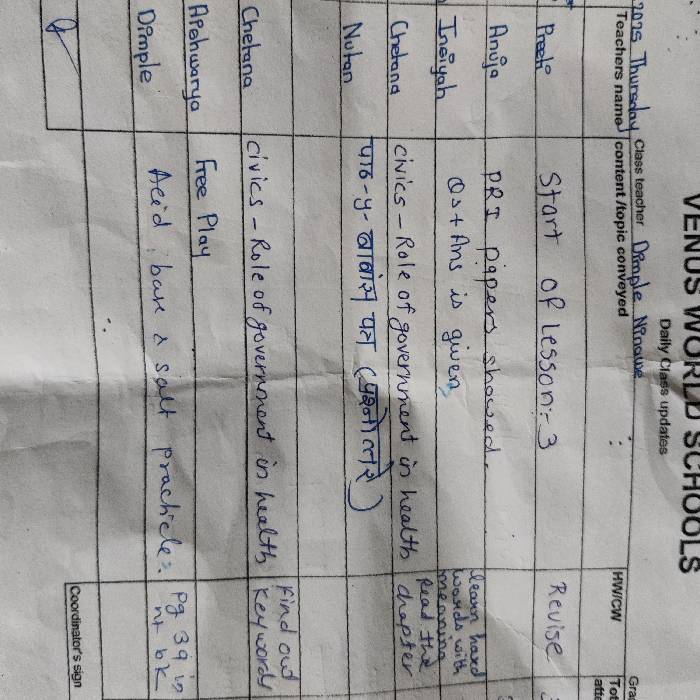 VENUS WORLD SCHOOLS
Daily Class updates
2025 Thursday Class teacher Dimple Ninawe
Teachers name content /topic conveyed HW/CW
Preeti Start of Lesson:- 3 Revise
Anuja PRI papers showed.
Insiyah Qs + Ans is given learn hard words with meaning
Chetana civics - Role of government in health Read the chapter
Nutan पाठ-५- (प्रश्नोत्तरे)
Chetana civics - Role of government in health Find out keywords
Apshwarya Free Play
Dimple Acid, base & salt practicle. Pg 39 in nt bk
Coordinator's sign